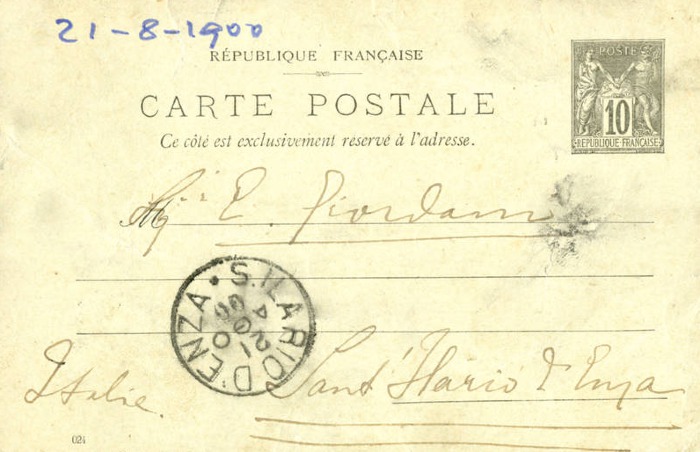 21-8-1900
RÉPUBLIQUE FRANÇAISE
POSTE
10
RÉPUBLIQUE FRANÇAISE
CARTE POSTALE
Ce côté est exclusivement reservé à l'adresse.
E. Giordani
S. ILARIO D'ENZA
Italie.
Sant'Ilario d'Enza
024